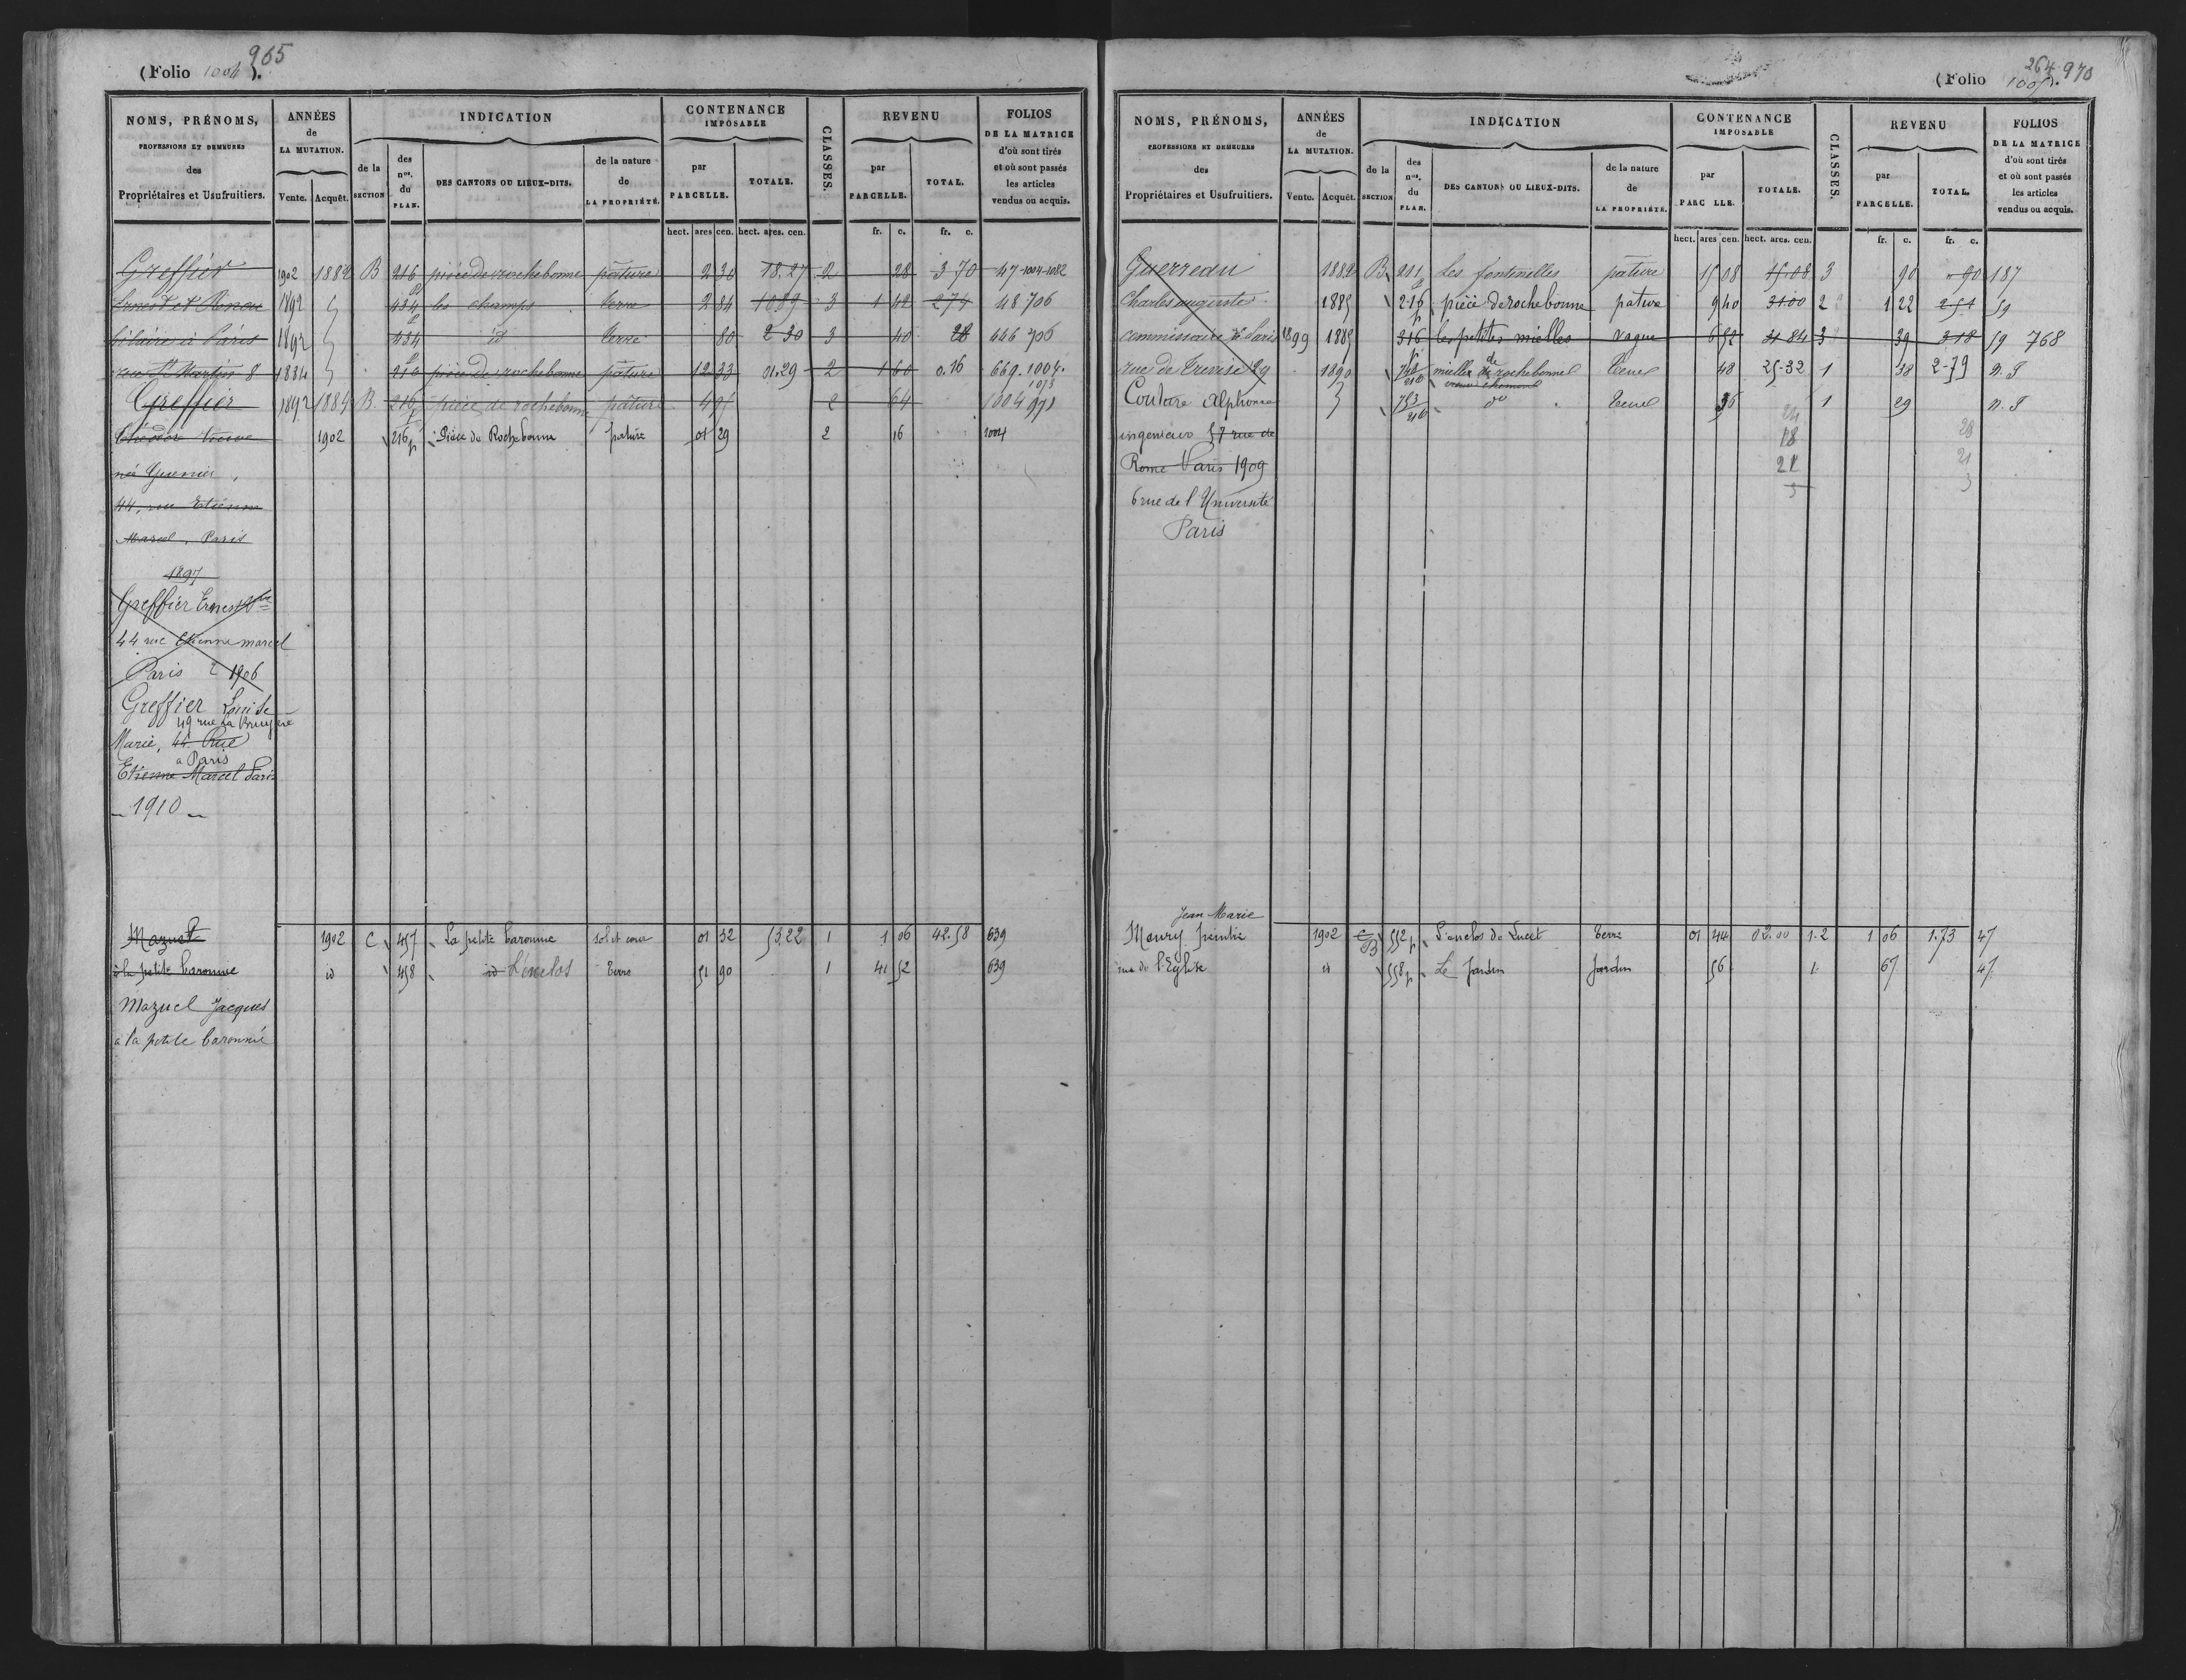 965
(Folio 1004).
NOMS, PRÉNOMS, PROFESSIONS ET DEMEURES des Propriétaires et Usufruitiers.
ANNÉES de LA MUTATION.
Vente. Acquêt.
INDICATION
de la SECTION
des nos. du PLAN.
DES CANTONS OU LIEUX-DITS.
de la nature de LA PROPRIÉTÉ.
CONTENANCE IMPOSABLE
par PARCELLE.
TOTALE.
CLASSES.
REVENU
par PARCELLE.
TOTAL.
FOLIOS DE LA MATRICE d'où sont tirés et où sont passés les articles vendus ou acquis.
hect. ares cen. hect. ares. cen. fr. c. fr. c.
Greffier 1902 1882 B 216 pièce de rochebonne pâture 2 30 18,27 2 28 3 70 47-1004-1082
Ernest et 1892 434 les champs terre 2 84 1089 3 1 42 274 48 706
à Paris 1892 434 id terre 80 2 30 3 40 28 446 706
rue St Martin 8 1884 216 pièce de rochebonne pâture 12 33 01.29 2 1 60 0.16 669.1004.
1013
Greffier 1892 1884 B 216 p pièce de rochebonne pâture 4 95 2 64 1004
1902 216 p Pièce de Rochebonne pature 01 29 2 16 1004
née
44, rue Etienne
Marcel, Paris
1897
Greffier Ernest Vve
44 rue Etienne marcel
Paris 2 1906
Greffier Louise
49 rue La Bruyère
Marie, 44 Rue
a Paris
Etienne Marcel Paris
1910
Mazuet 1902 C 457 La petite baronnie sol et cour 01 32 53,22 1 1 06 42.58 639
à la petite baronnie id 458 id L'enclos terre 51 90 1 41 52 639
Mazuel Jacques
a la petite baronnie
264 970
(Folio 1005).
NOMS, PRÉNOMS, PROFESSIONS ET DEMEURES des Propriétaires et Usufruitiers.
ANNÉES de LA MUTATION.
Vente. Acquêt.
INDICATION
de la SECTION
des nos. du PLAN.
DES CANTONS OU LIEUX-DITS.
de la nature de LA PROPRIÉTÉ.
CONTENANCE IMPOSABLE
par PARC LLE.
TOTALE.
CLASSES.
REVENU
par PARCELLE.
TOTAL.
FOLIOS DE LA MATRICE d'où sont tirés et où sont passés les articles vendus ou acquis.
hect. ares cen. hect. ares. cen. fr. c. fr. c.
Guerreau 1882 B 211 Les fontenelles pature 15 08 15.08 3 90 90 187
Charles auguste 1885 216 p pièce de rochebonne pature 9 40 31.00 2 1 22 2 51 59
commissaire Paris 1899 1885 316 les petites mielles vague 6 52 31 84 3 39 3 18 59 768
rue de Trevise 29 1890 748 p 216 mielle de rochebonne 48 25-32 1 38 2-79 n.
Coutore Alphonse 753 216 do 36 1 29 n.
24 28
ingenieur 57 rue de 18
Rome Paris 1909 21 21
3 3
6 rue de l'Université
Paris
Jean Marie
Maury peintre 1902 C B 552 p L'enclos de Lucet terre 01 44 02.00 1.2 1 06 1.73 47
rue de l'Eglise id 558 p Le Jardin Jardin 56 1. 67 47